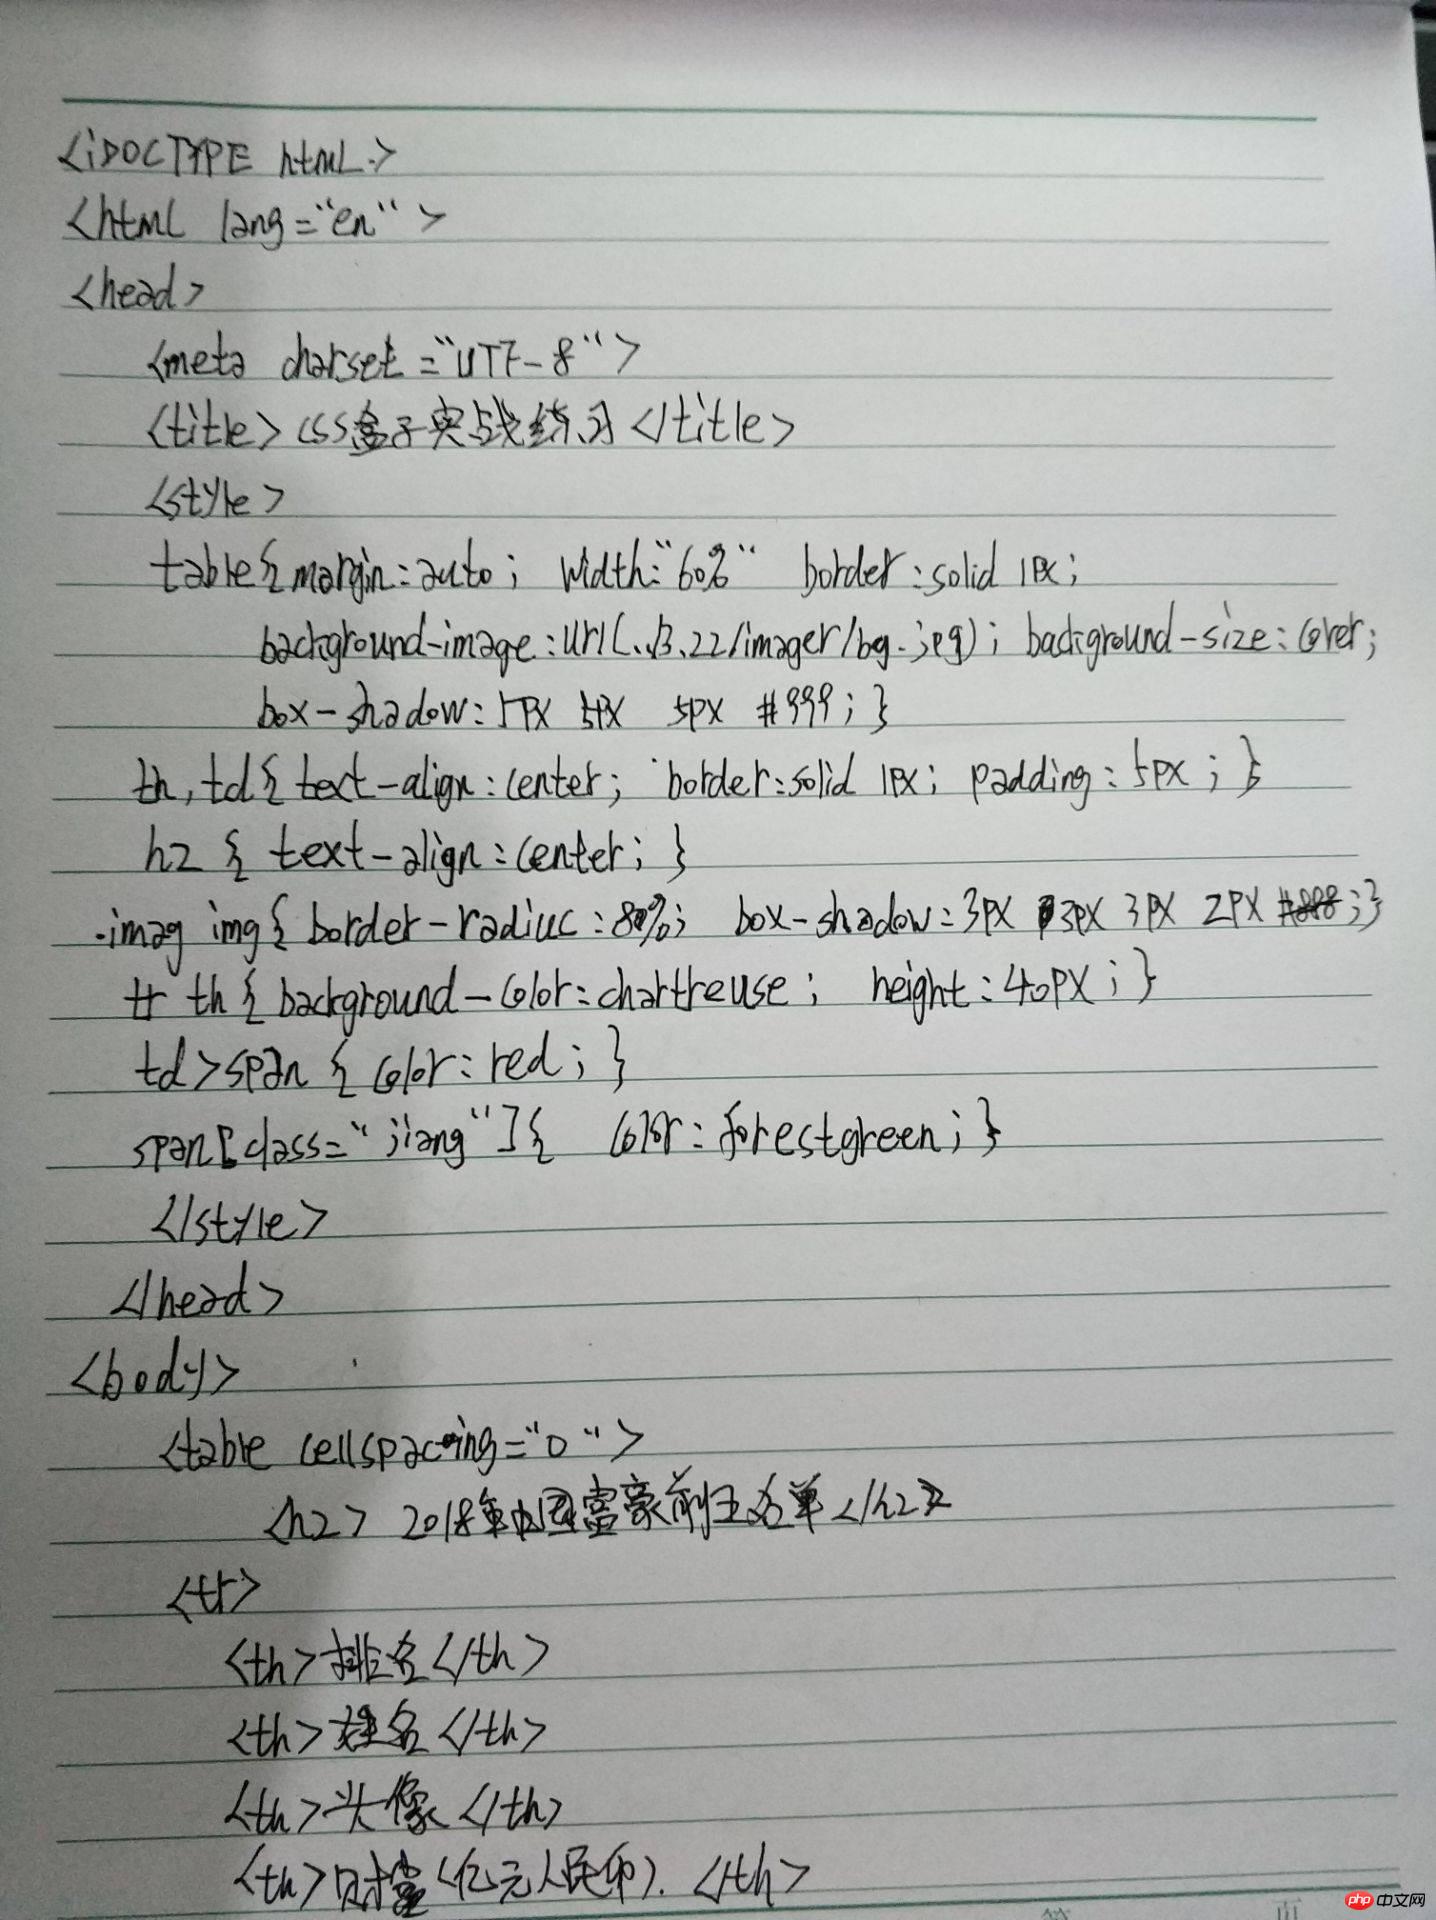 <iDOCTYPE html.>
<html lang="en">
<head>
<meta charset="UTF-8">
<title>CSS盒子实战练习</title>
<style>
table{margin:auto; width:"60%" border:solid 1PX;
background-image:url(../3.22/imager/bg.jpg); background-size:cover;
box-shadow:5PX 5PX 5PX #999;}
th,td{text-align:center; border:solid 1PX; padding:5PX;}
h2{text-align:center;}
.imag img{border-radiuc:80%; box-shadow:3PX 3PX 3PX 2PX #888;}
tr th{background-color:chartreuse; height:40PX;}
td>span{color:red;}
span[class="jiang"]{ color:forestgreen;}
</style>
</head>
<body>
<table cellspacing="0">
<h2>2018年中国富豪前五名单</h2>
<tr>
<th>排名</th>
<th>姓名</th>
<th>头像</th>
<th>财富(亿元人民币).</th>
php 中文网